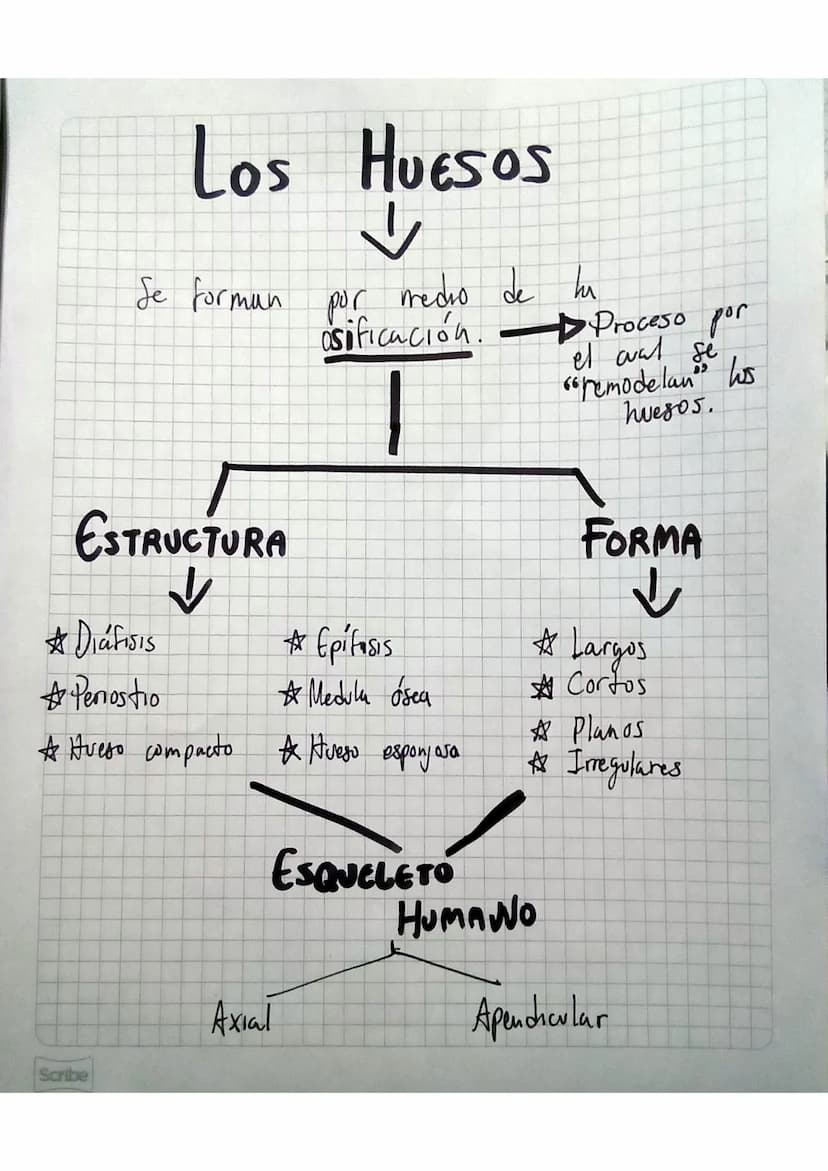 Los Huesos
Se forman por medio de la
osificación.
Proceso por
el cual se
"remodelan" los
huesos.
ESTRUCTURA
FORMA
Diáfisis
Epífisis
Largos
Periostio
Medula ósea
Cortos
Hueso compacto
Hueso esponjosa
Planos
Irregulares
ESQUELETO
HUMANO
Axial
Apendicular
Scribe